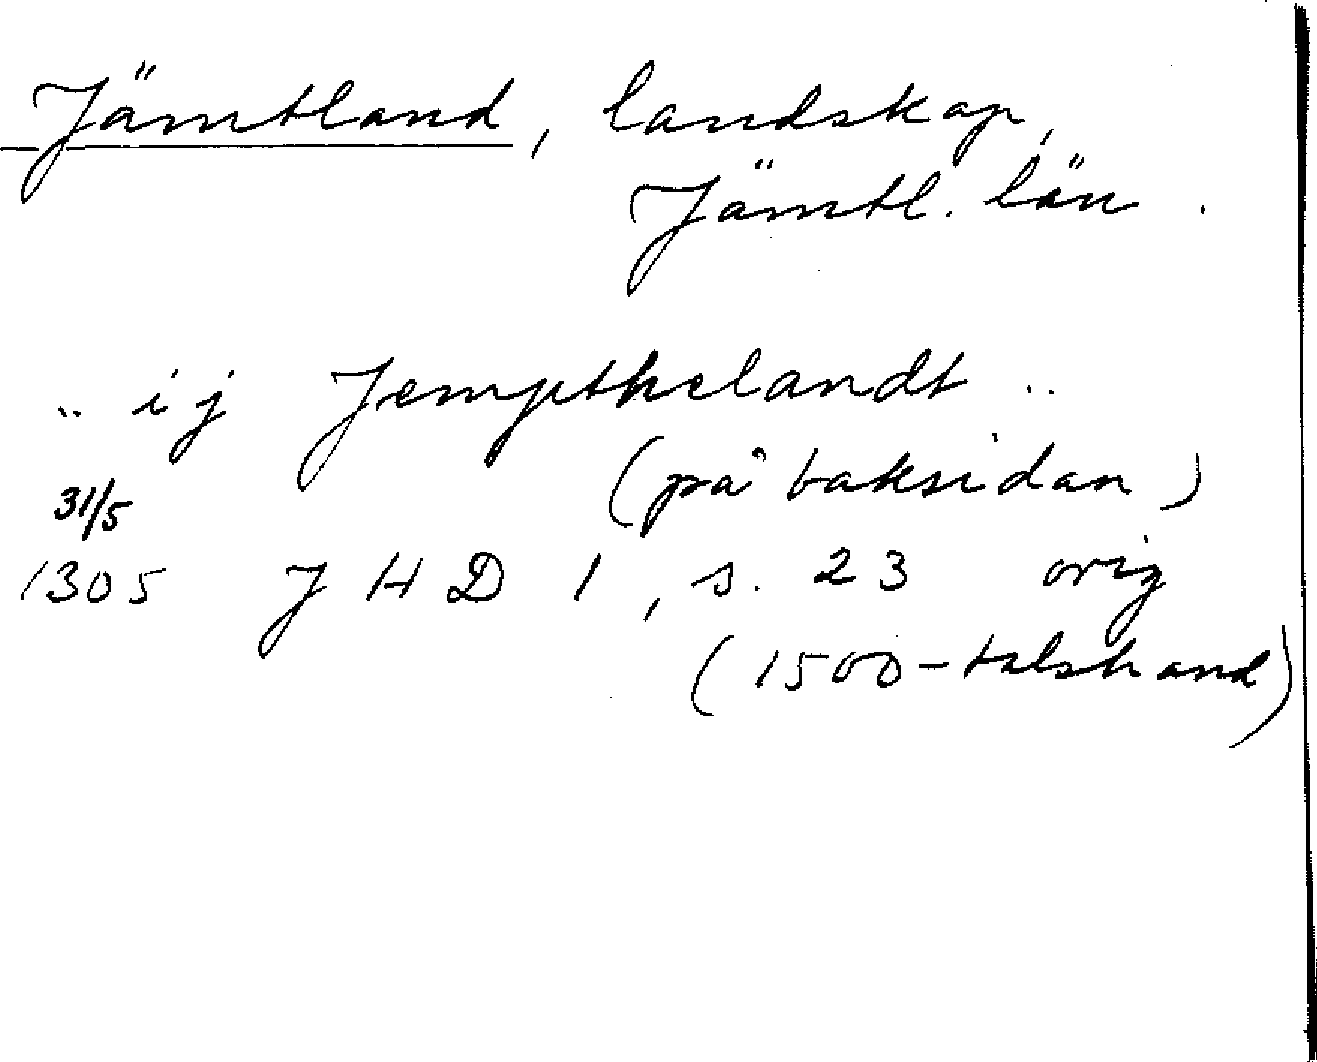 Jämtland, landskap,
Jämtl. län.
.. ij Jempthelandt ..
(på baksidan)
31/5
1305 J H D 1, s. 23 orig
(1500-talshand)